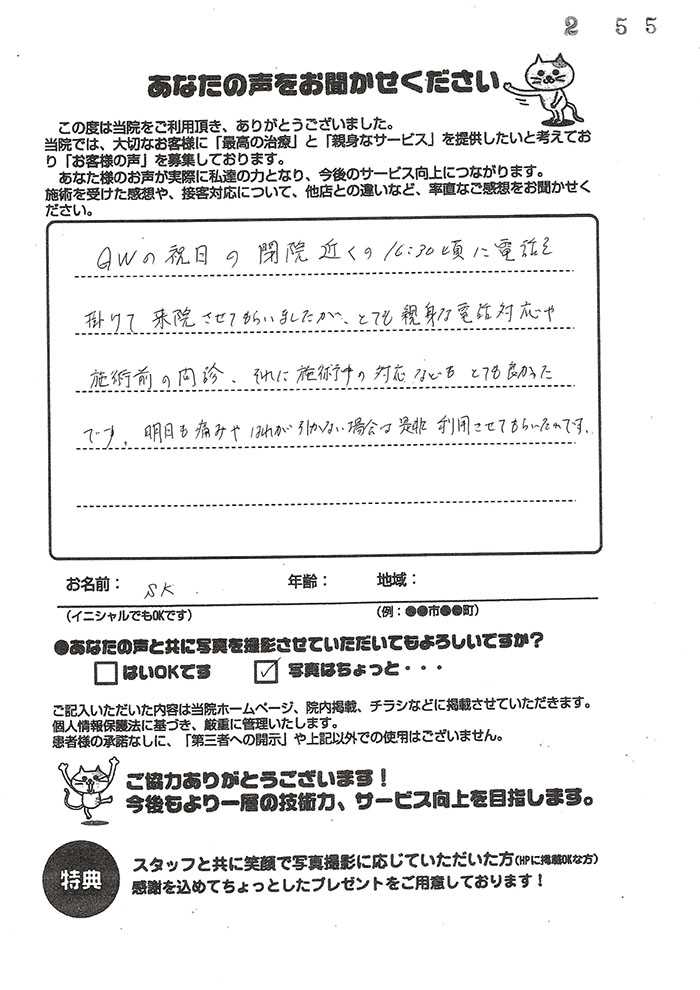 2 5 5
あなたの声をお聞かせください
この度は当院をご利用頂き、ありがとうございました。
当院では、大切なお客様に「最高の治療」と「親身なサービス」を提供したいと考えてお
り「お客様の声」を募集しております。
あなた様のお声が実際に私達の力となり、今後のサービス向上につながります。
施術を受けた感想や、接客対応について、他店との違いなど、率直なご感想をお聞かせく
ださい。
GWの祝日の閉院近くの16:30頃に電話を
掛けて来院させてもらいましたが、とても親身な電話対応や
施術前の問診、それに施術中の対応などもとても良かった
です。明日も痛みやはれが引かない場合は是非利用させてもらいたいです。
お名前： SK. 年齢： 地域：
（イニシャルでもOKです） （例：●●市●●町）
●あなたの声と共に写真を撮影させていただいてもよろしいですか？
□はいOKです ☑写真はちょっと・・・
ご記入いただいた内容は当院ホームページ、院内掲載、チラシなどに掲載させていただきます。
個人情報保護法に基づき、厳重に管理いたします。
患者様の承諾なしに、「第三者への開示」や上記以外での使用はございません。
ご協力ありがとうございます！
今後もより一層の技術力、サービス向上を目指します。
特典
スタッフと共に笑顔で写真撮影に応じていただいた方（HPに掲載OKな方）
感謝を込めてちょっとしたプレゼントをご用意しております！